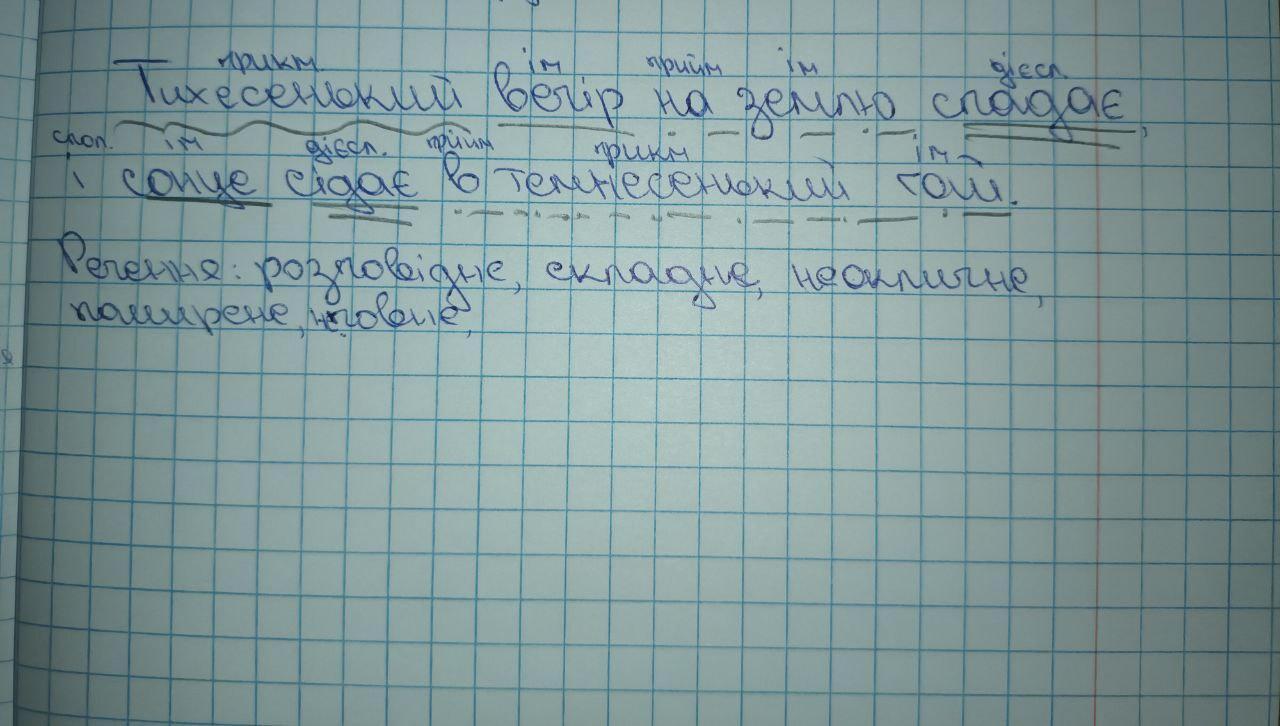 прикм ім прийм ім дієсл
Тихесенький вечір на землю спадає,
спол. ім дієсл. прийм прикм ім
і сонце сідає в темнесенький гай.
Речення: розповідне, складне, неоклична,
поширене,